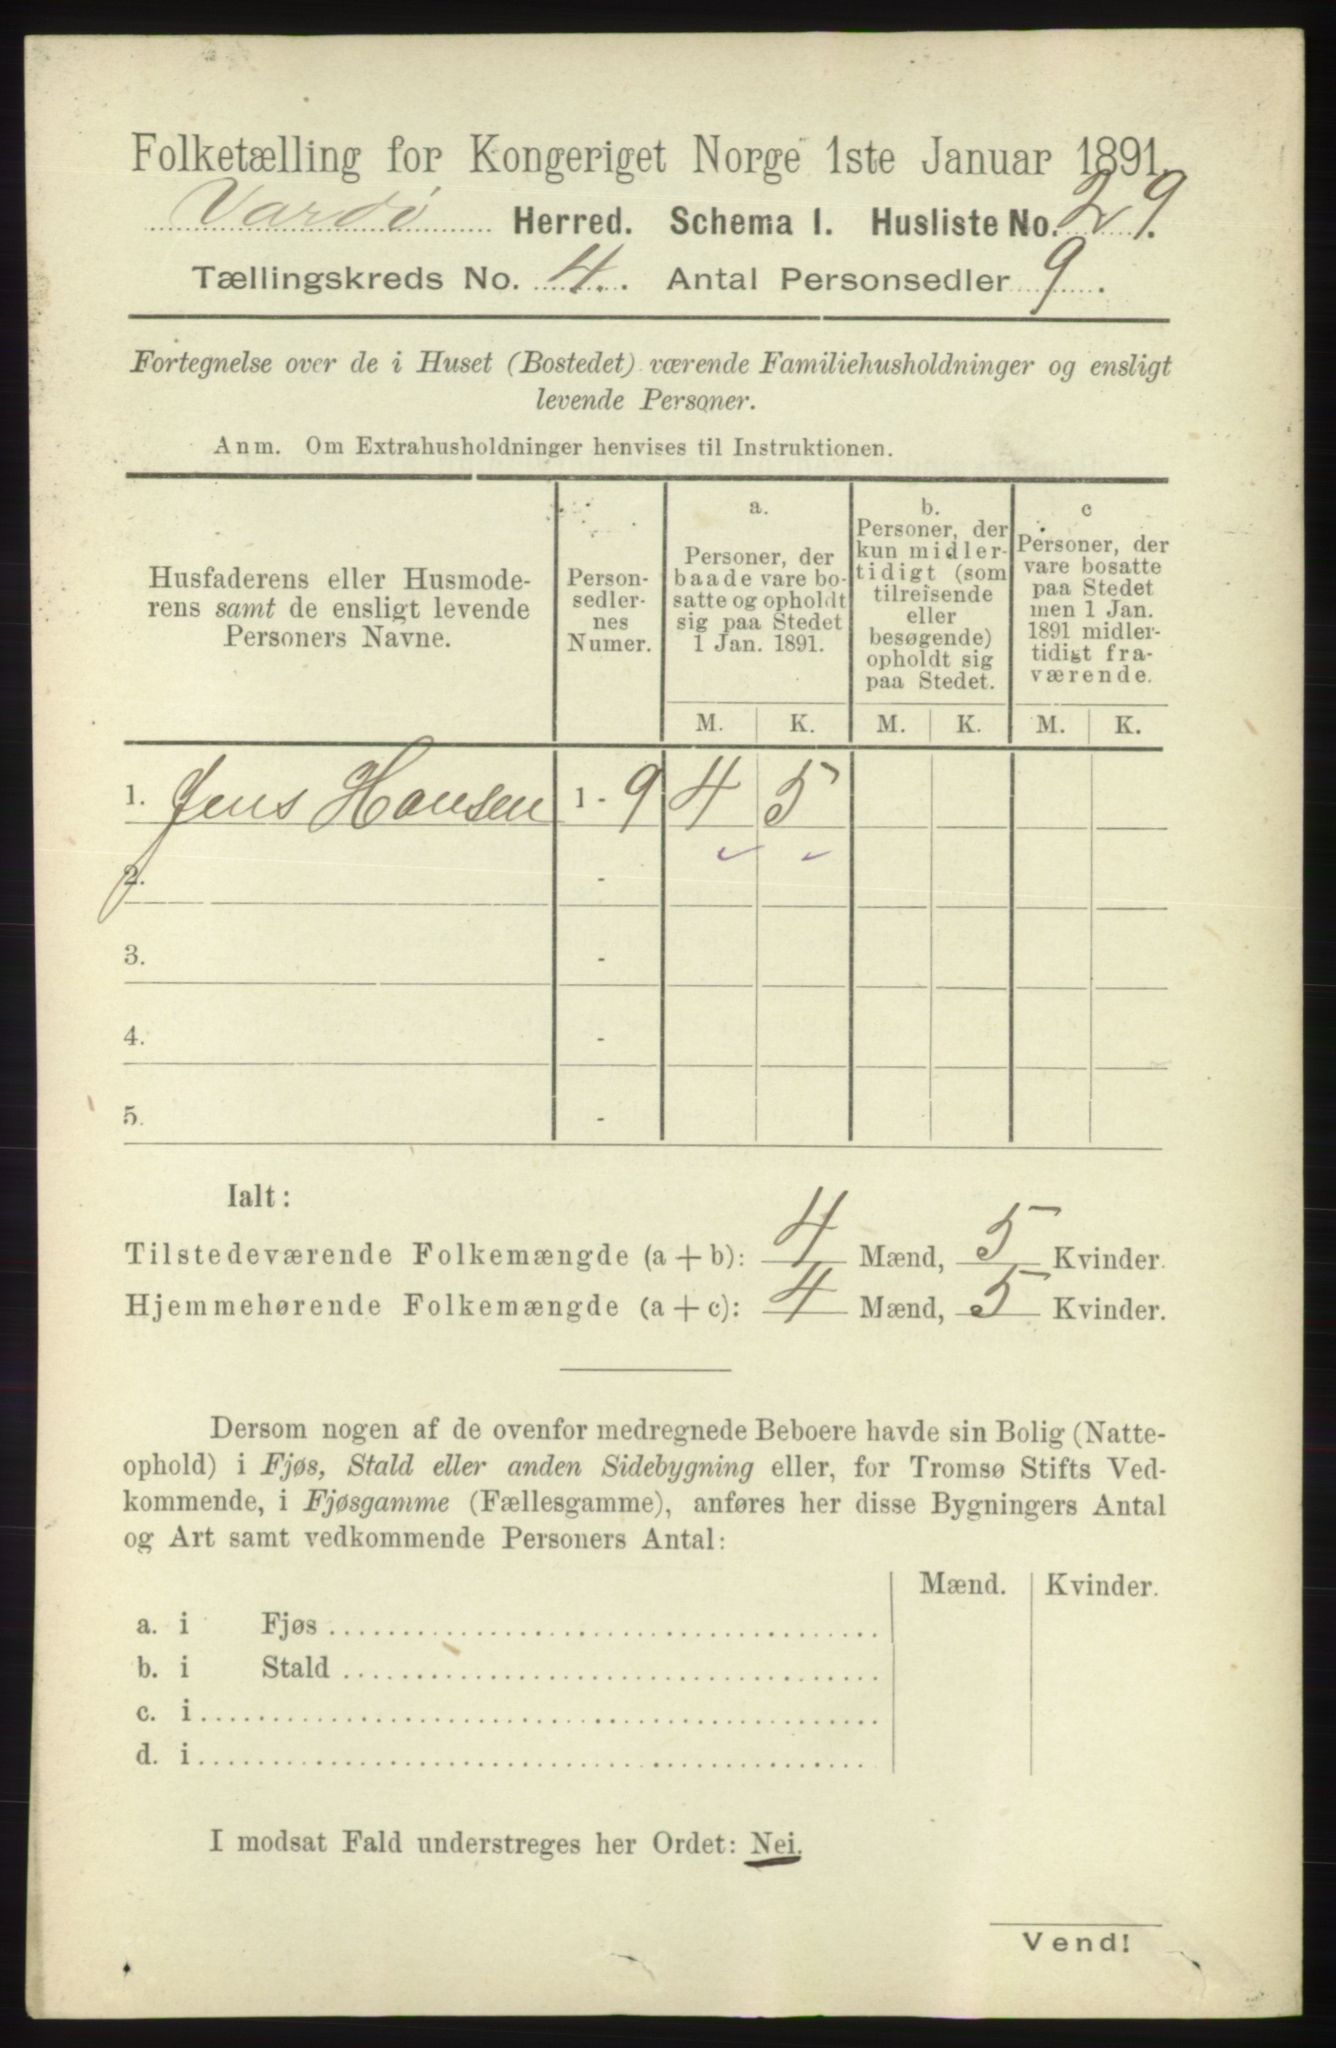 Folketælling for Kongeriget Norge 1ste Januar 1891.
Vardø Herred. Schema I. Husliste No. 29.
Tællingskreds No. 4. Antal Personsedler 9.
Fortegnelse over de i Huset (Bostedet) værende Familiehusholdninger og ensligt
levende Personer.
Anm. Om Extrahusholdninger henvises til Instruktionen.
Husfaderens eller Husmode-
rens samt de ensligt levende
Personers Navne.
Person-
sedler-
nes
Numer.
a.
Personer, der
baade vare bo-
satte og opholdt
sig paa Stedet
1 Jan. 1891.
b.
Personer, der
kun midler-
tidigt (som
tilreisende
eller
besøgende)
opholdt sig
paa Stedet.
c
Personer, der
vare bosatte
paa Stedet
men 1 Jan.
1891 midler-
tidigt fra-
værende.
M. K. M. K. M. K.
1. Jens Hansen 1 - 9 4 5
2. -
3. -
4. -
5. -
Ialt:
Tilstedeværende Folkemængde (a + b): 4 Mænd, 5 Kvinder.
Hjemmehørende Folkemængde (a + c): 4 Mænd, 5 Kvinder.
Dersom nogen af de ovenfor medregnede Beboere havde sin Bolig (Natte-
ophold) i Fjøs, Stald eller anden Sidebygning eller, for Tromsø Stifts Ved-
kommende, i Fjøsgamme (Fællesgamme), anføres her disse Bygningers Antal
og Art samt vedkommende Personers Antal:
Mænd. Kvinder.
a. i Fjøs
b. i Stald
c. i
d. i
I modsat Fald understreges her Ordet: Nei.
Vend!